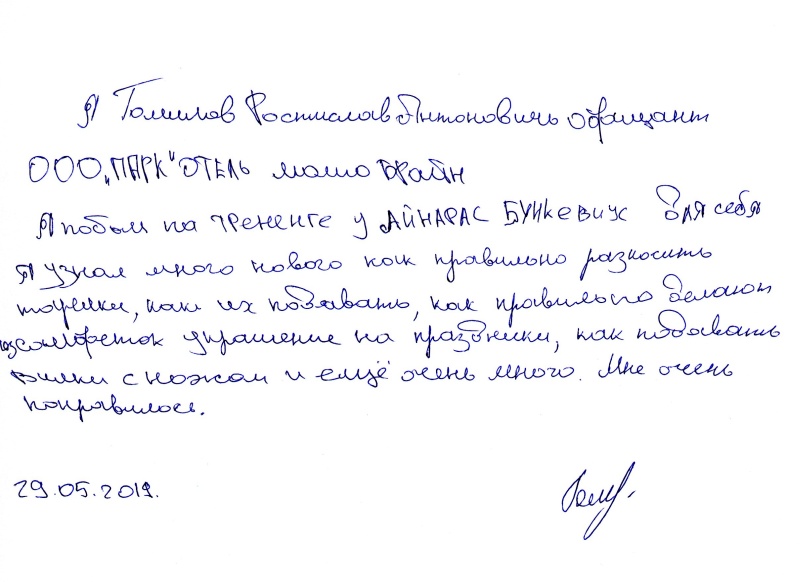 Я Томилов Ростислав Антоновичь официант
ООО "ПАРК" ОТЕЛЬ мото БРАЙН
Я побыл на трененге у АЙНАРАС БУНКевичус Для себя
я узнал много нового как правильно разносить
торелки, как их подавать, как правильно делают
из солфеток украшение на праздники, как подовать
вилки с ножом и емщё очень много. Мне очень
понравилось.
29.05.2019.